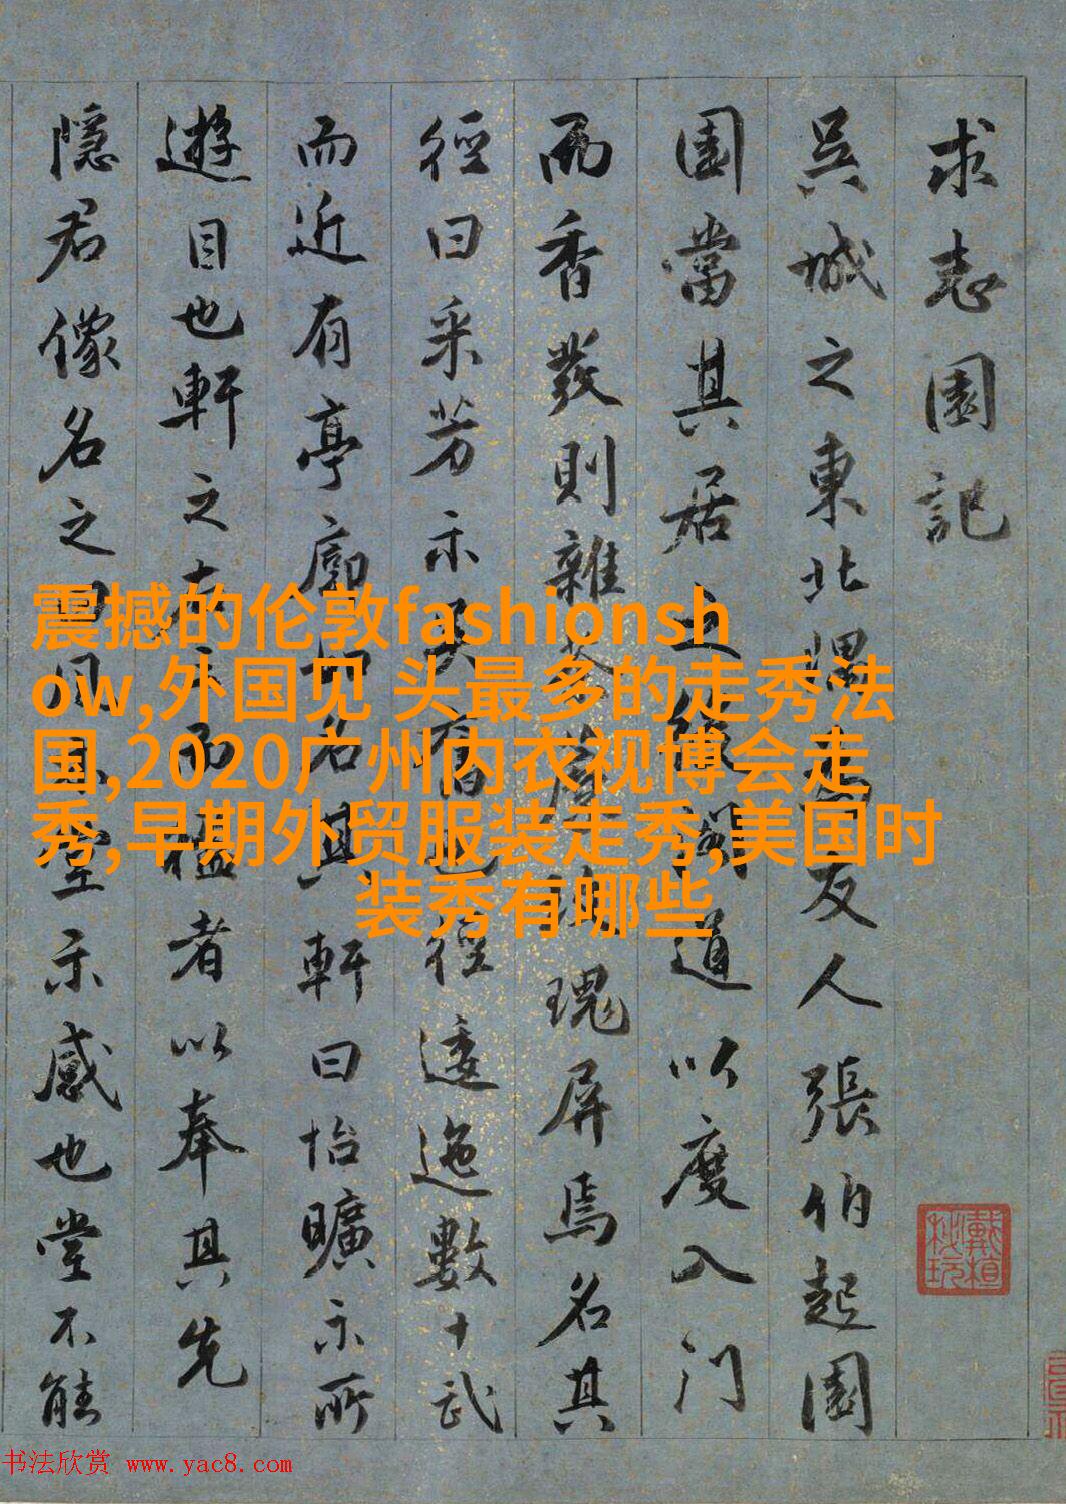 求志園記
吳城之東北隅為友人張伯起園
園當其居之後闢道以度入門
而香發則雜荼蘼玫瑰屏焉名其
徑曰采芳示舊也徑逶迤數十武
而近有亭廓如名其軒曰怡曠示所
遊目也軒之右而楹者以奉其先
隱君像名之曰堂示感也堂不能
震撼的伦敦fashionsh
ow,外国见 头最多的走秀法
国,2020广州内衣视博会走
秀,早期外贸服装走秀,美国时
装秀有哪些
戴植
秘玩
书法欣赏 www.yac8.com